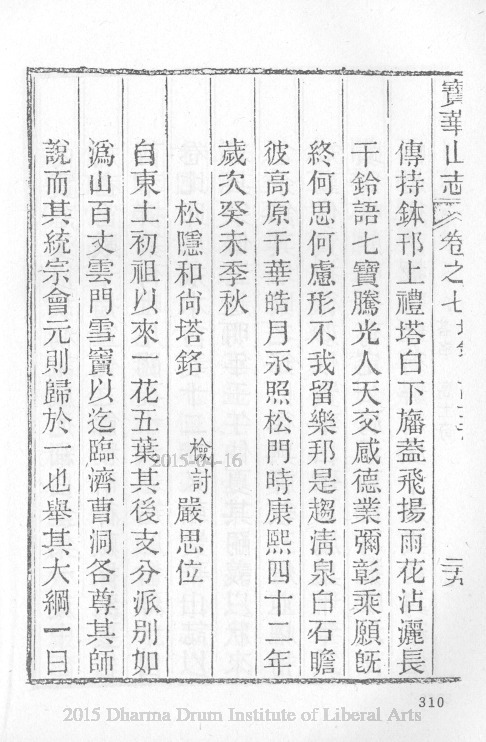 寶華山志 卷之七 二十六
傳持鉢邗上禮塔白下旛葢飛揚雨花沾灑長
干鈴語七寶騰光人天交感德業彌彰乘願旣
終何思何慮形不我留樂邦是趨淸泉白石瞻
彼高原千華皓月永照松門時康熙四十二年
歲次癸未季秋
松隱和尙塔銘 檢討 嚴思位
自東土初祖以來一花五葉其後支分派別如
潙山百丈雲門雪竇以迄臨濟曹洞各尊其師
說而其統宗會元則歸於一也舉其大綱一曰
2015-04-16
310
2015 Dharma Drum Institute of Liberal Arts